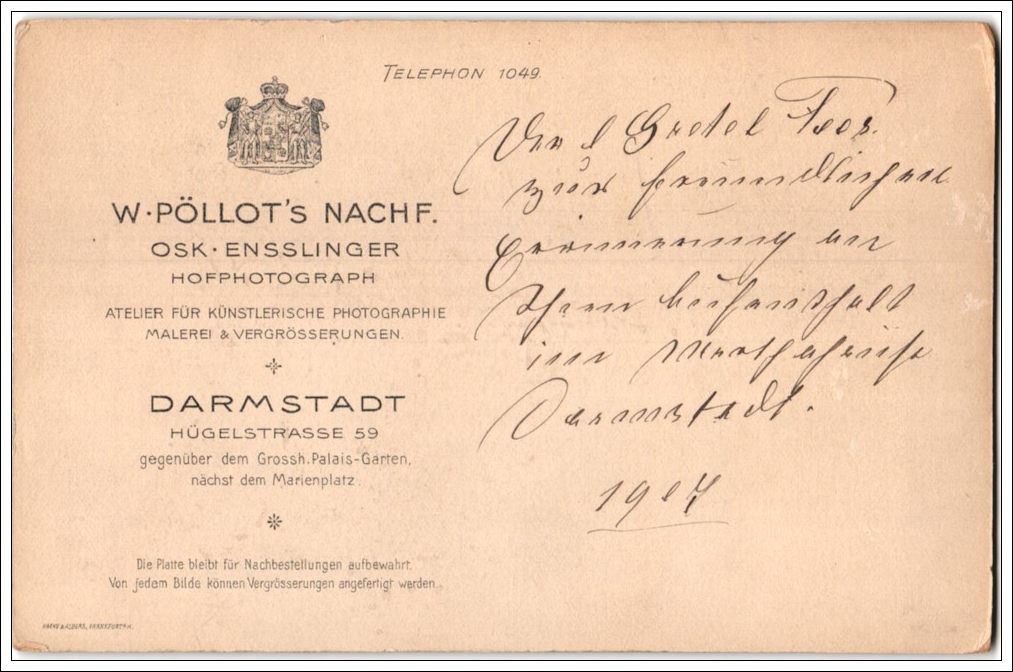 TELEPHON 1049.
W. PÖLLOT'S NACHF.
OSK. ENSSLINGER
HOFPHOTOGRAPH
ATELIER FÜR KÜNSTLERISCHE PHOTOGRAPHIE
MALEREI & VERGRÖSSERUNGEN.
DARMSTADT
HÜGELSTRASSE 59
gegenüber dem Grossh. Palais-Garten,
nächst dem Marienplatz.
Die Platte bleibt für Nachbestellungen aufbewahrt.
Von jedem Bilde können Vergrösserungen angefertigt werden.
Gretel
zur freundlichen
Erinnerung an
Ihren Aufenthalt
im
Darmstadt.
1907